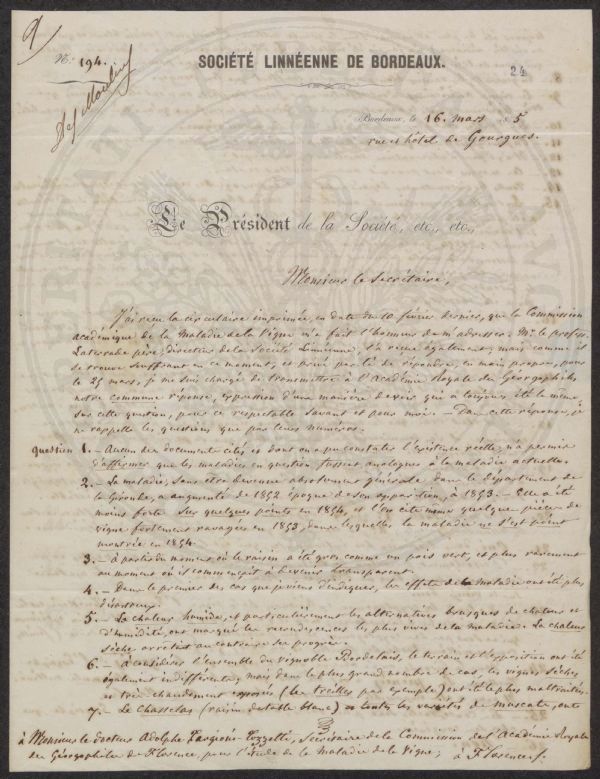 9
N.° 194.
Des Moulins
SOCIÉTÉ LINNÉENNE DE BORDEAUX.
24
Bordeaux, le 16. mars 1855
rue et hôtel de Gourgues.
Le Président de la Société, etc., etc.,
Monsieur le Secrétaire,
J'ai reçu la circulaire imprimée, en date du 10 février dernier, que la Commission
académique de la Maladie de la Vigne m'a fait l'honneur de m'adresser. Mr. le profess.
Laterrade père, directeur de la Société Linnéenne, l'a reçue également; mais comme il
se trouve souffrant en ce moment, et prié par lui de répondre, en mon propre, pour
le 25 mars, je me suis chargé de transmettre à l'Académie Royale des Géorgophiles
notre commune réponse, expression d'une manière de voir qui a toujours été la même
sur cette question, pour ce respectable savant et pour moi. — Dans cette réponse, je
ne rappelle les questions que par leurs numéros.
Question 1. — Aucun des documents cités et dont on a pu constater l'existence réelle, n'a permis
d'affirmer que les maladies en question fussent analogues à la maladie actuelle.
2. — La maladie, sans être devenue absolument générale dans le département de
la Gironde, a augmenté de 1852 époque de son apparition, à 1853. — Elle a été
moins forte sur quelques points en 1854, et l'on cite même quelques pièces de
vigne fortement ravagées en 1853, dans lesquelles la maladie ne s'est point
montrée en 1854.
3. — à partir du moment où le raisin a été gros comme un pois vert, et plus rarement
au moment où il commençait à devenir transparent.
4. — Dans le premier des cas que je viens d'indiquer, les effets de la maladie ont été plus
désastreux.
5. — La chaleur humide, et particulièrement les alternatives brusques de chaleur et
d'humidité, ont marqué les recrudescences les plus vives de la maladie. La chaleur
sèche arrêtait au contraire ses progrès.
6. — à considérer l'ensemble du vignoble Bordelais, le terrain et l'exposition ont été
également indifférents; mais dans le plus grand nombre de cas, les vignes sèches
et très chaudement exposées (les treilles par exemple) ont été le plus maltraitées.
7. — Le Chasselas (raisin de table blanc) et toutes les variétés de muscats, ont
à Monsieur le docteur Adolphe Targioni-Tozzetti, Secrétaire de la Commission de l'Académie Royale
des Géorgophiles de Florence, pour l'Étude de la Maladie de la Vigne; à Florence.